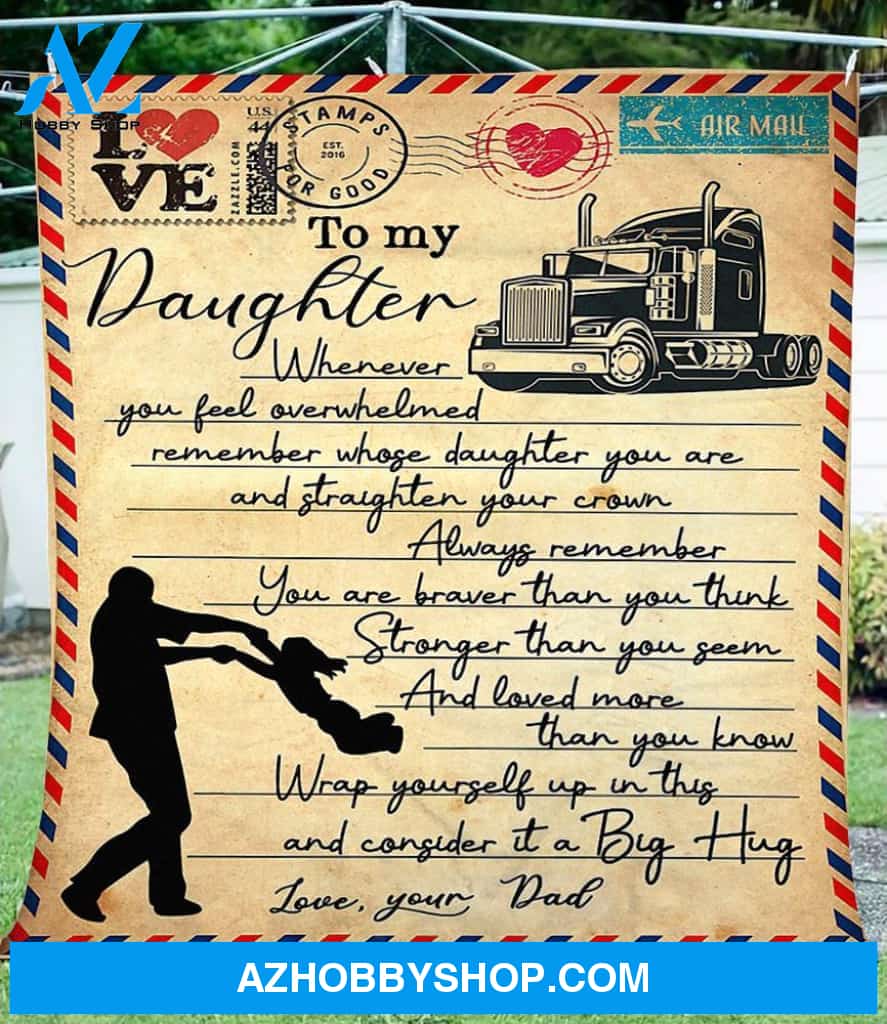 AZ
Hobby Shop
LOVE
U.S.
44
ZAZZLE.COM
STAMPS
EST.
2016
FOR GOOD
AIR MAIL
To my
Daughter
Whenever
you feel overwhelmed
remember whose daughter you are
and straighten your crown
Always remember
You are braver than you think
Stronger than you seem
And loved more
than you know
Wrap yourself up in this
and consider it a Big Hug
Love, your Dad
AZHOBBYSHOP.COM